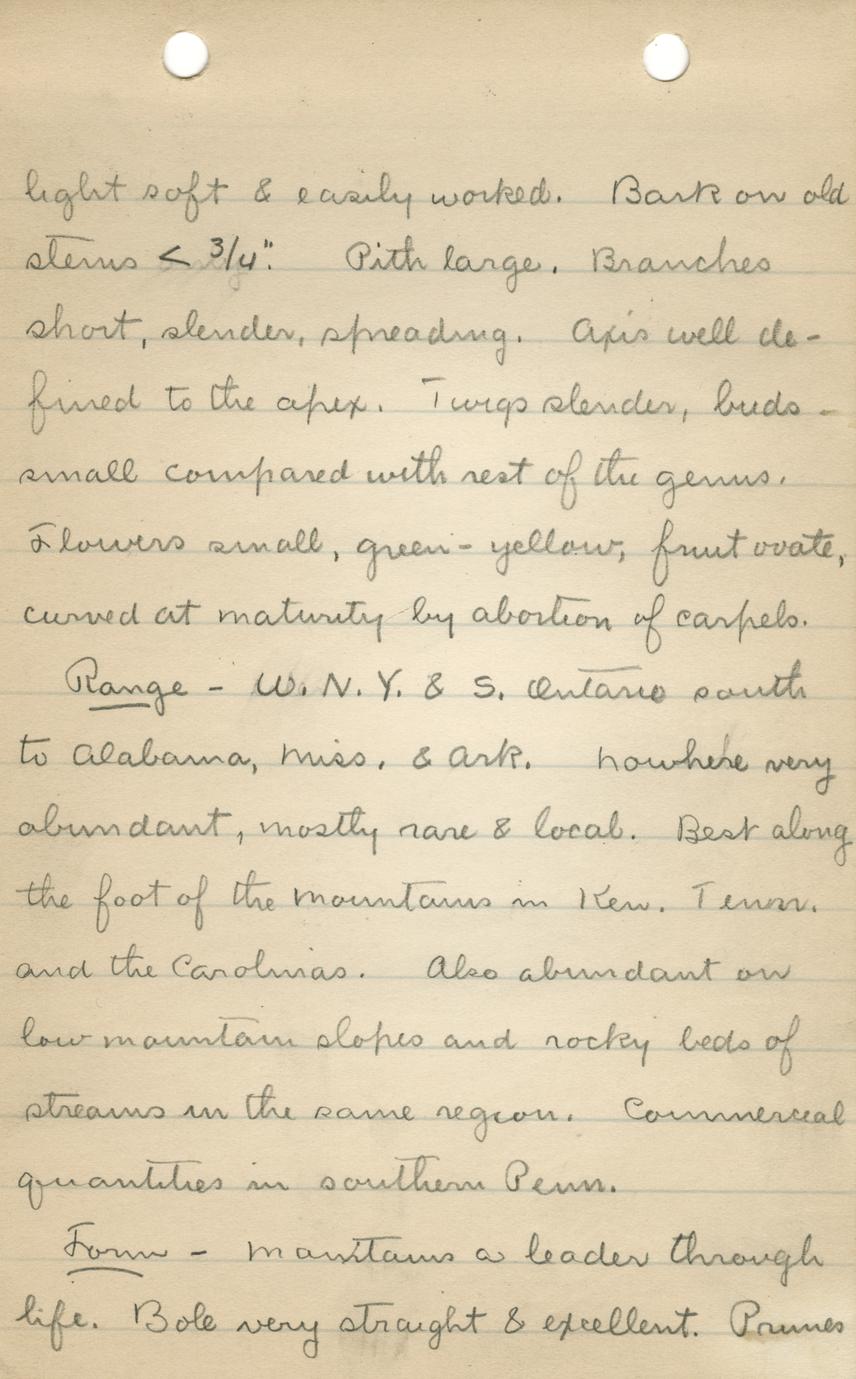 light soft & easily worked. Bark on old
stems < 3/4". Pith large. Branches
short, slender, spreading. Axis well de-
fined to the apex. Twigs slender, buds -
small compared with rest of the genus.
Flowers small, green-yellow, fruit ovate,
curved at maturity by abortion of carpels.
Range - W. N. Y. & S. Ontario south
to Alabama, Miss. & Ark. Nowhere very
abundant, mostly rare & local. Best along
the foot of the mountains in Ken. Tenn.
and the Carolinas. Also abundant on
low mountain slopes and rocky beds of
streams in the same region. Commercial
quantities in southern Penn.
Form - Maintains a leader through
life. Bole very straight & excellent. Prunes